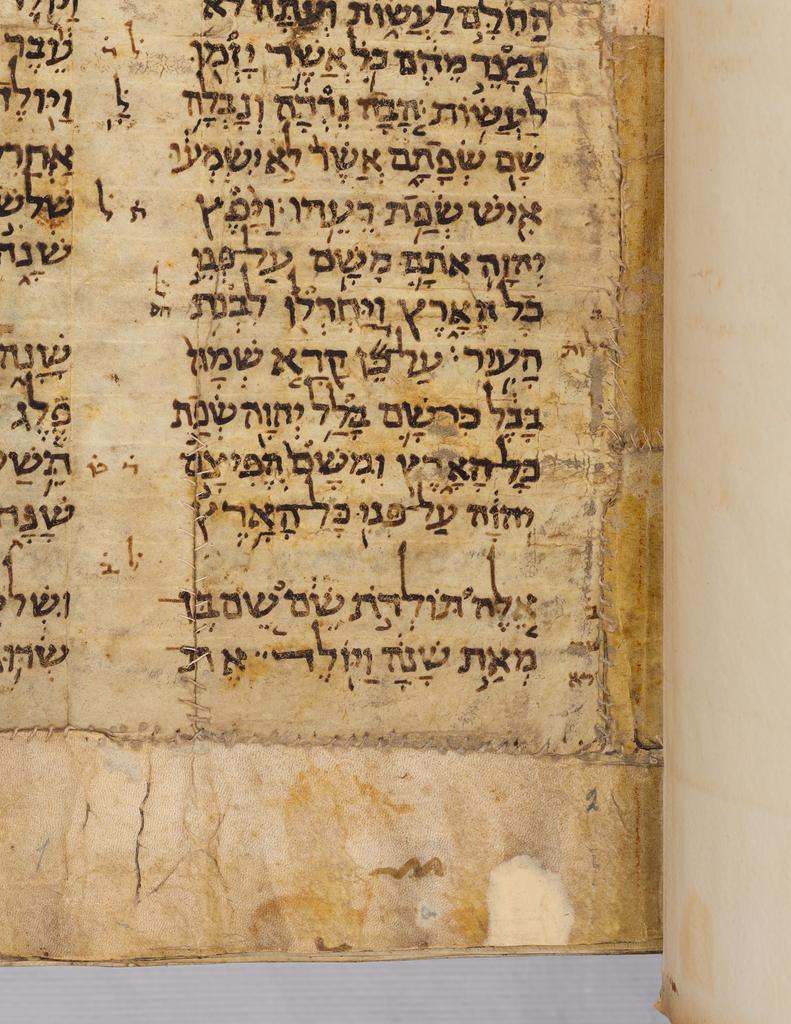 הַחִלָּם לַעֲשׂוֹת וְעַתָּה לֹא
יִבָּצֵר מֵהֶם כֹּל אֲשֶׁר יָזְמוּ
לַעֲשׂוֹת הָבָה נֵרְדָה וְנָבְלָה
שָׁם שְׂפָתָם אֲשֶׁר לֹא יִשְׁמְעוּ
אִישׁ שְׂפַת רֵעֵהוּ וַיָּפֶץ
יְהוָה אֹתָם מִשָּׁם עַל פְּנֵי
כָל הָאָרֶץ וַיַּחְדְּלוּ לִבְנֹת
הָעִיר עַל כֵּן קָרָא שְׁמָהּ
בָּבֶל כִּי שָׁם בָּלַל יְהוָה שְׂפַת
כָּל הָאָרֶץ וּמִשָּׁם הֱפִיצָם
יְהוָה עַל פְּנֵי כָּל הָאָרֶץ
אֵלֶּה תּוֹלְדֹת שֵׁם שֵׁם בֶּן
מְאַת שָׁנָה וַיּוֹלֶד אֶת
עֵבֶר
וַיּוֹלֶ
אַחֲר
שְׁלֹשׁ
שָׁנָה
שָׁנָה
פֶּלֶג
תֵּשַׁע
שָׁנָה
וּשְׁל
שְׂרוּ
2